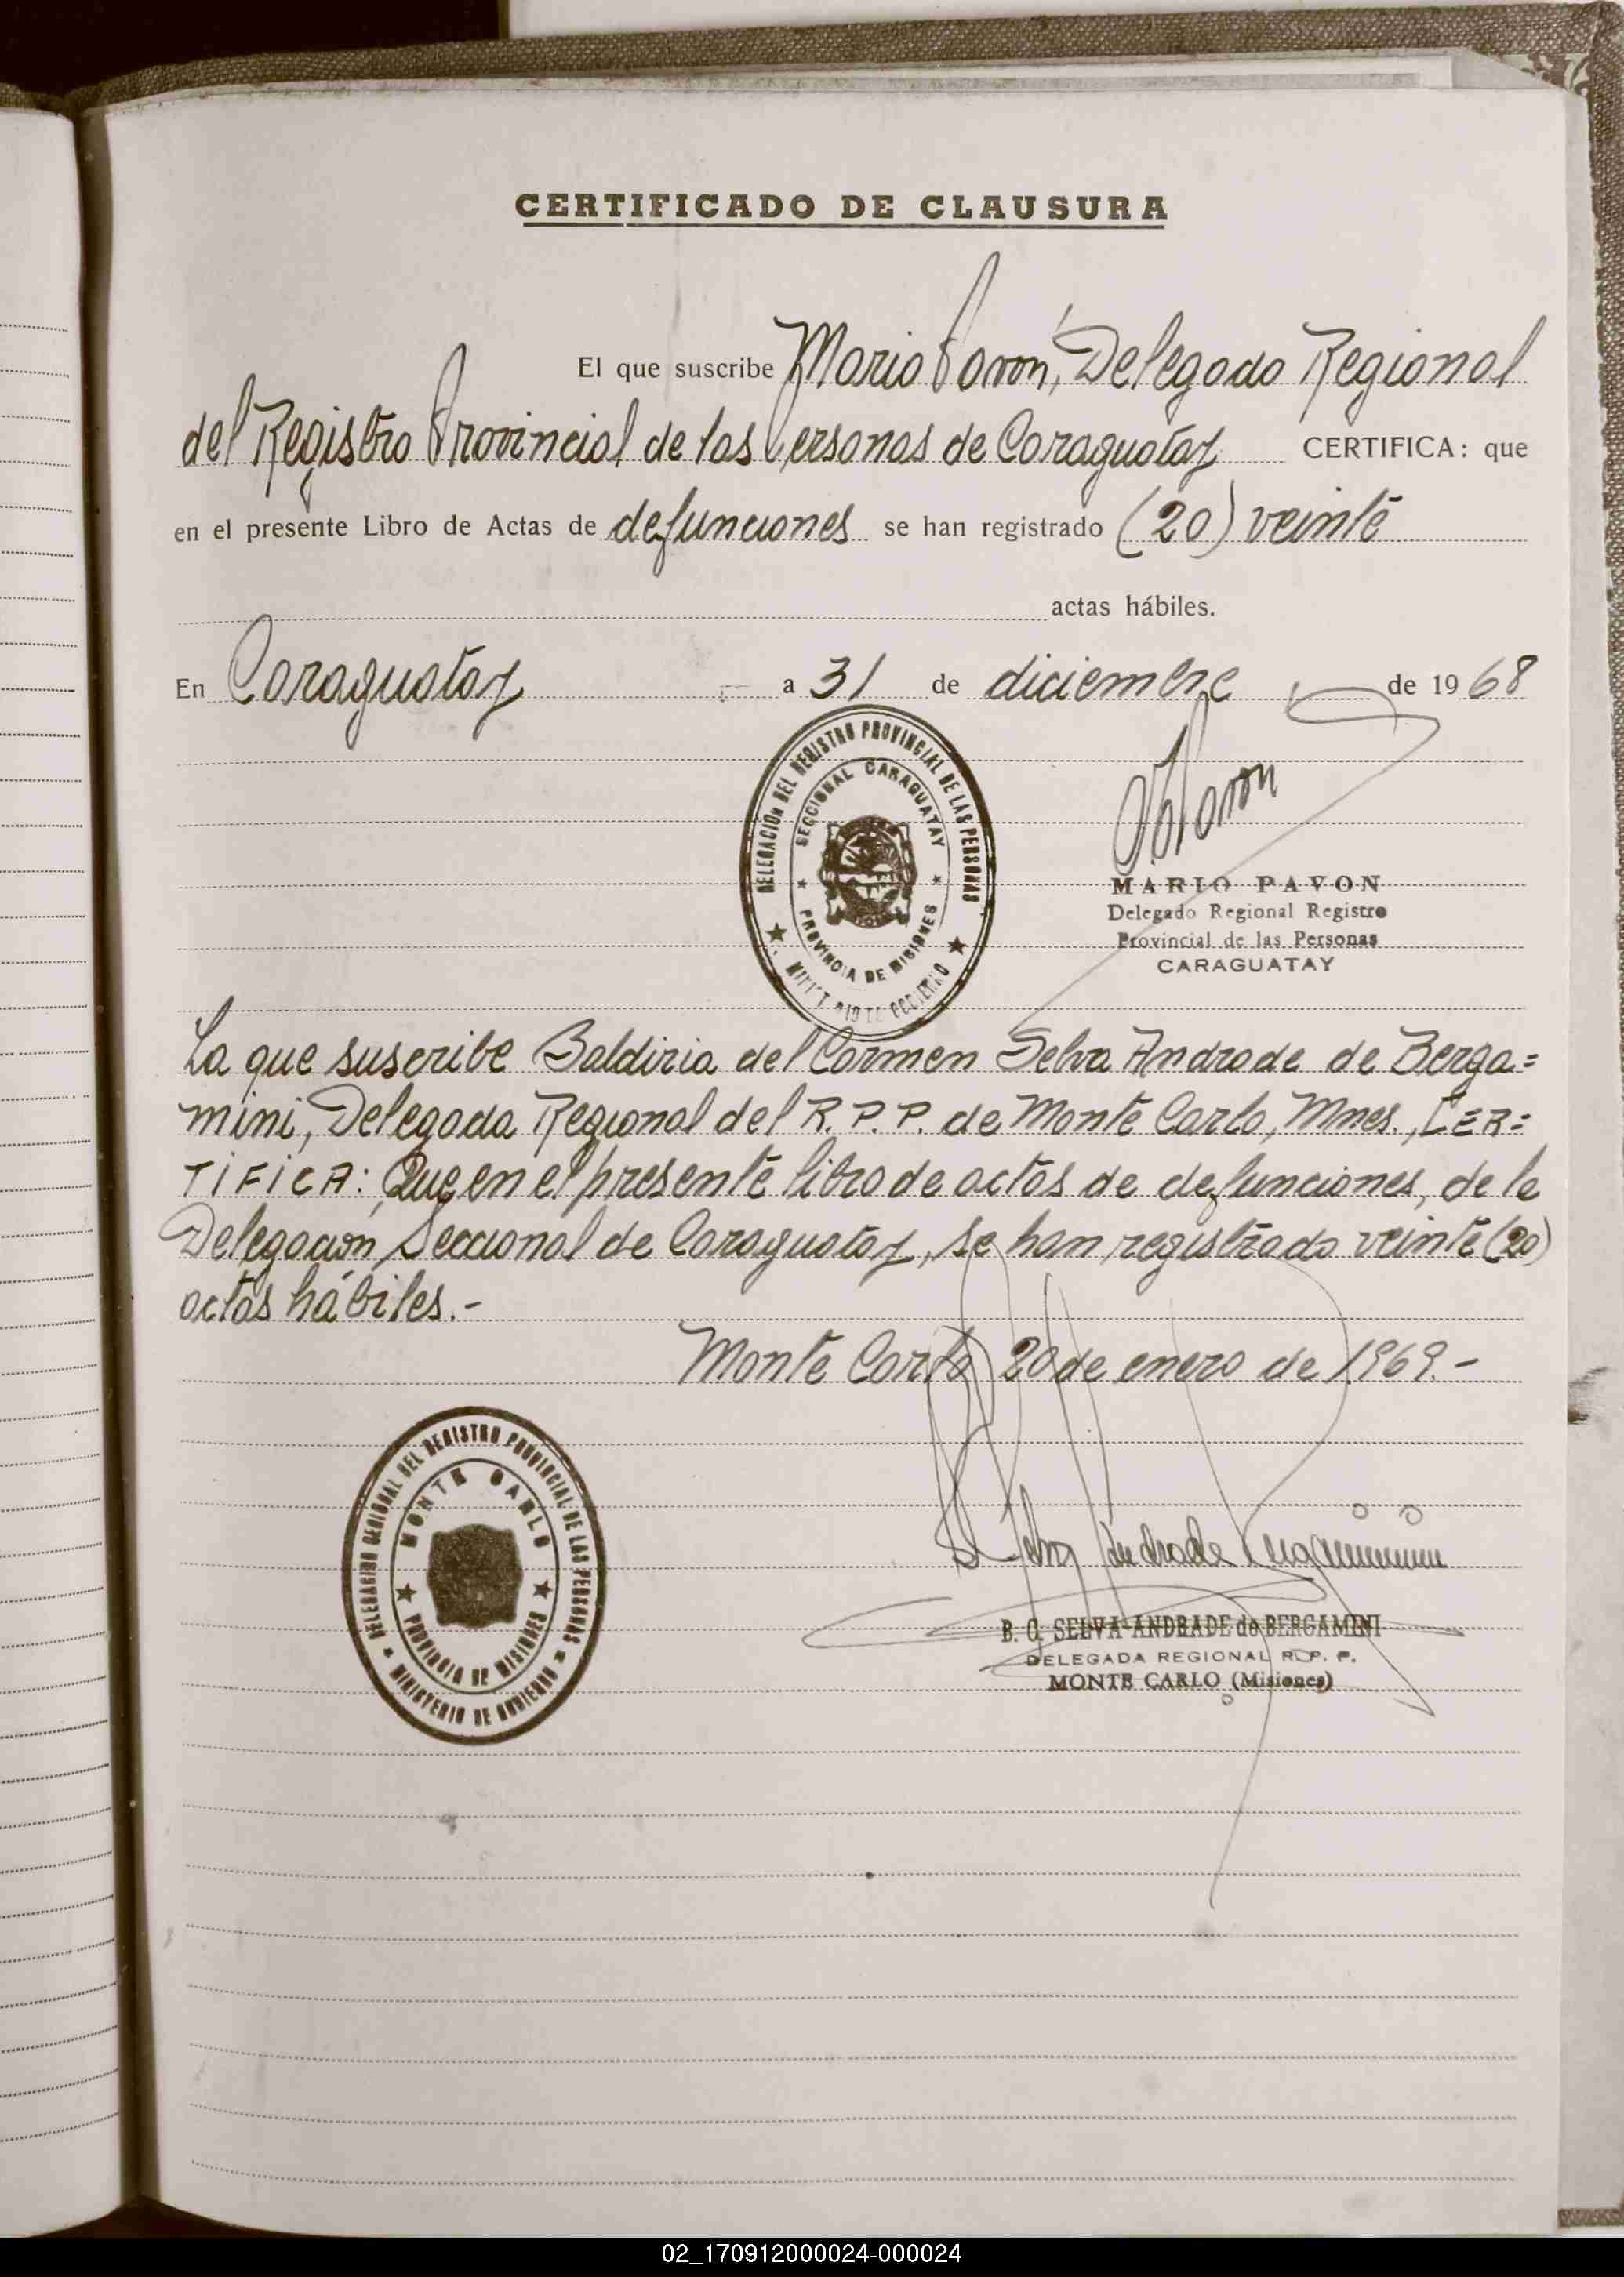 CERTIFICADO DE CLAUSURA
El que suscribe Mario Pavon, Delegado Regional
del Registro Provincial de las Personas de Caraguatay CERTIFICA: que
en el presente Libro de Actas de defunciones se han registrado (20) veinte
actas hábiles.
En Caraguatay a 31 de diciembre de 1968
DELEGACION DEL REGISTRO PROVINCIAL DE LAS PERSONAS
SECCIONAL CARAGUATAY
PROVINCIA DE MISIONES
MARIO PAVON
Delegado Regional Registro
Provincial de las Personas
CARAGUATAY
La que suscribe Baldiria del Carmen Selva Andrade de Berga=
mini, Delegada Regional del R.P.P. de Monte Carlo, Mnes., CER=
TIFICA: Que en el presente libro de actas de defunciones, de la
Delegación Seccional de Caraguatay, se han registrado veinte (20)
actas hábiles.-
Monte Carlo 20 de enero de 1969.-
DELEGACION REGIONAL DEL REGISTRO PROVINCIAL DE LAS PERSONAS
MONTE CARLO
PROVINCIA DE MISIONES
MINISTERIO DE GOBIERNO
B. C. SELVA ANDRADE de BERGAMINI
DELEGADA REGIONAL R. P. P.
MONTE CARLO (Misiones)
02_170912000024-000024